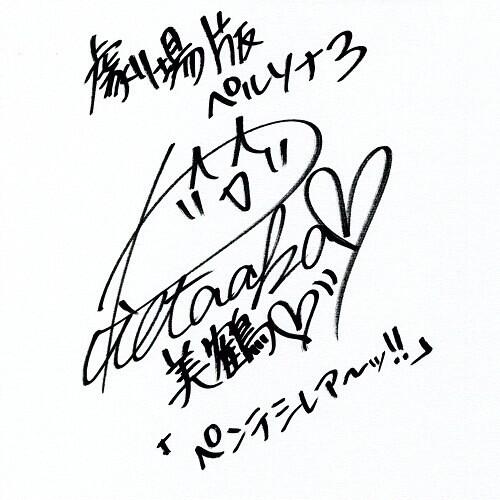 劇場版
ペルソナ3
美鶴♡
「ペンテシレア〜ッ!!」